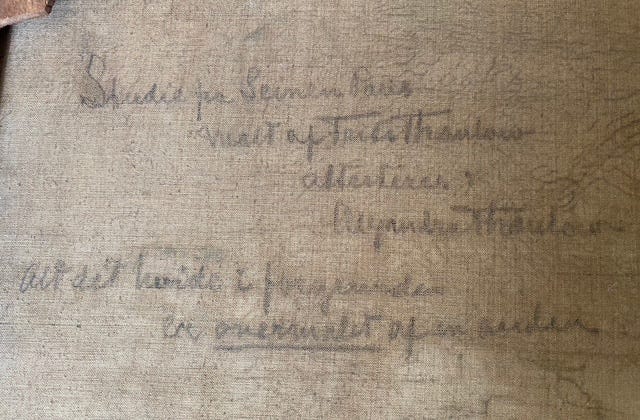 Studie fra Seinen Paris
malt af Frits Thaulow
attesteres
Alexandra Thaulow
Alt det hvide i forgrunden
er overmalet af en anden